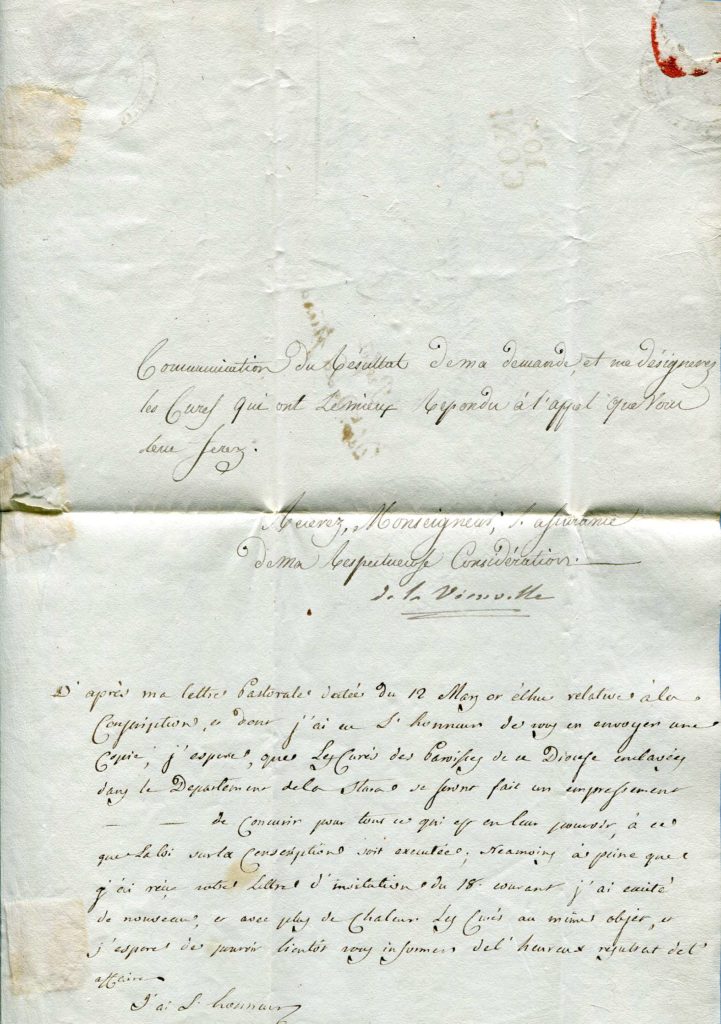 Communication du Résultat de ma demande et me désignerez
les Curés qui ont le mieux Repondu à l'appel que Vous
leur ferez.
Recevez, Monseigneur, l'assurance
de ma Respectueuse Considération.
de la Vieuville
D'après ma lettre Pastorale datée du 12 Mars relative à la
Conscription, et dont j'ai eu l'honneur de vous en envoyer une
Copie, j'espere, que Les Curés des Paroisses de ce Diocese enclavées
dans le Departement de la Stura se seront fait un empressement
— — de Concourir pour tout ce qui est en leur pouvoir, à ce
que La loi sur la Conscription soit executée; Neamoins à peine que
j'ai reçu votre Lettre d'invitation du 18. courant j'ai excité
de nouveau, et avec plus de Chaleur Les Curés au même objet, et
j'espere de pouvoir bientôt vous informer de l'heureux resultat de l'
affaire
J'ai l'honneur